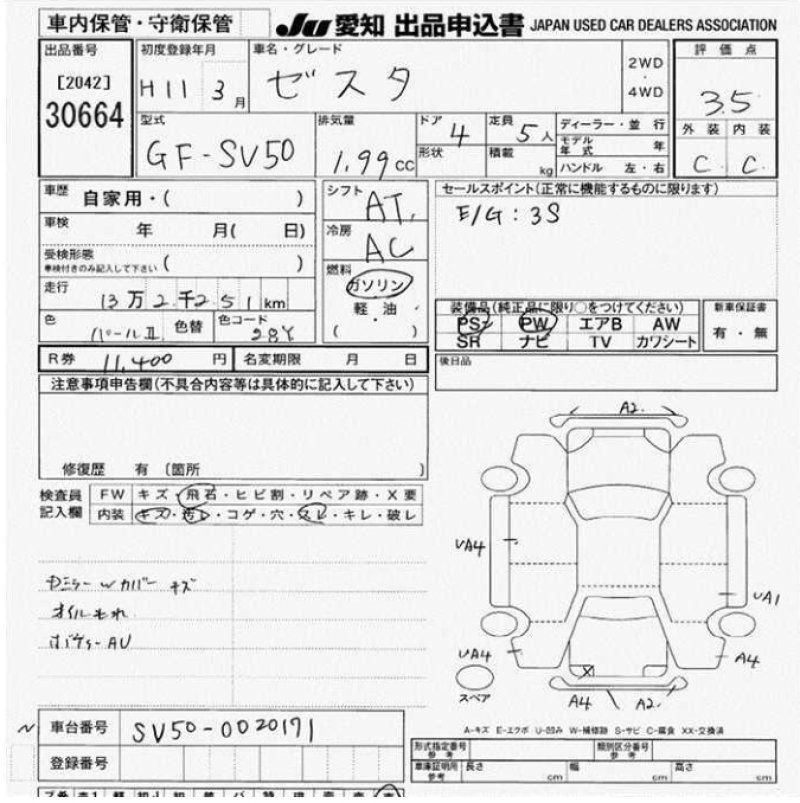 車内保管・守衛保管
JU 愛知 出品申込書 JAPAN USED CAR DEALERS ASSOCIATION
出品番号 初度登録年月 車名・グレード 2WD・4WD 評価点
[2042]
30664
H11 3月 ゼスタ 3.5
型式 排気量 ドア 4 定員 5人 ディーラー・並行 外装 内装
GF-SV50 1.99cc 形状 積載 kg モデル年式 年 C C
ハンドル 左・右
車歴 自家用・( ) シフト AT セールスポイント(正常に機能するものに限ります)
車検 年 月( 日) 冷房 AC E/G:3S
受検形態 ※車検付きのみ記入して下さい ( )
燃料 ガソリン・軽油・( )
走行 13万2千251km
装備品(純正品に限り○をつけてください) 新車保証書
色 パールII 色替 色コード 28Y PS PW エアB AW 有・無
SR ナビ TV カワシート
R券 11,400円 名変期限 月 日 後日品
注意事項申告欄(不具合内容等は具体的に記入して下さい)
修復歴 有 〔箇所 〕
検査員記入欄 FW キズ・飛石・ヒビ割・リペア跡・X要
内装 キズ・汚レ・コゲ・穴・スレ・キレ・破レ
ミラー w カバー キズ
オイルもれ
ボディー AU
A2.
UA4
UA1
UA4
A4
A4 A2.
スペア
A-キズ E-エクボ U-凹み W-補修跡 S-サビ C-腐食 XX-交換済
車台番号 SV50-0020171
登録番号
形式指定番号 参考 類別区分番号 参考
車庫証明用 参考 長さ cm 幅 cm 高さ cm